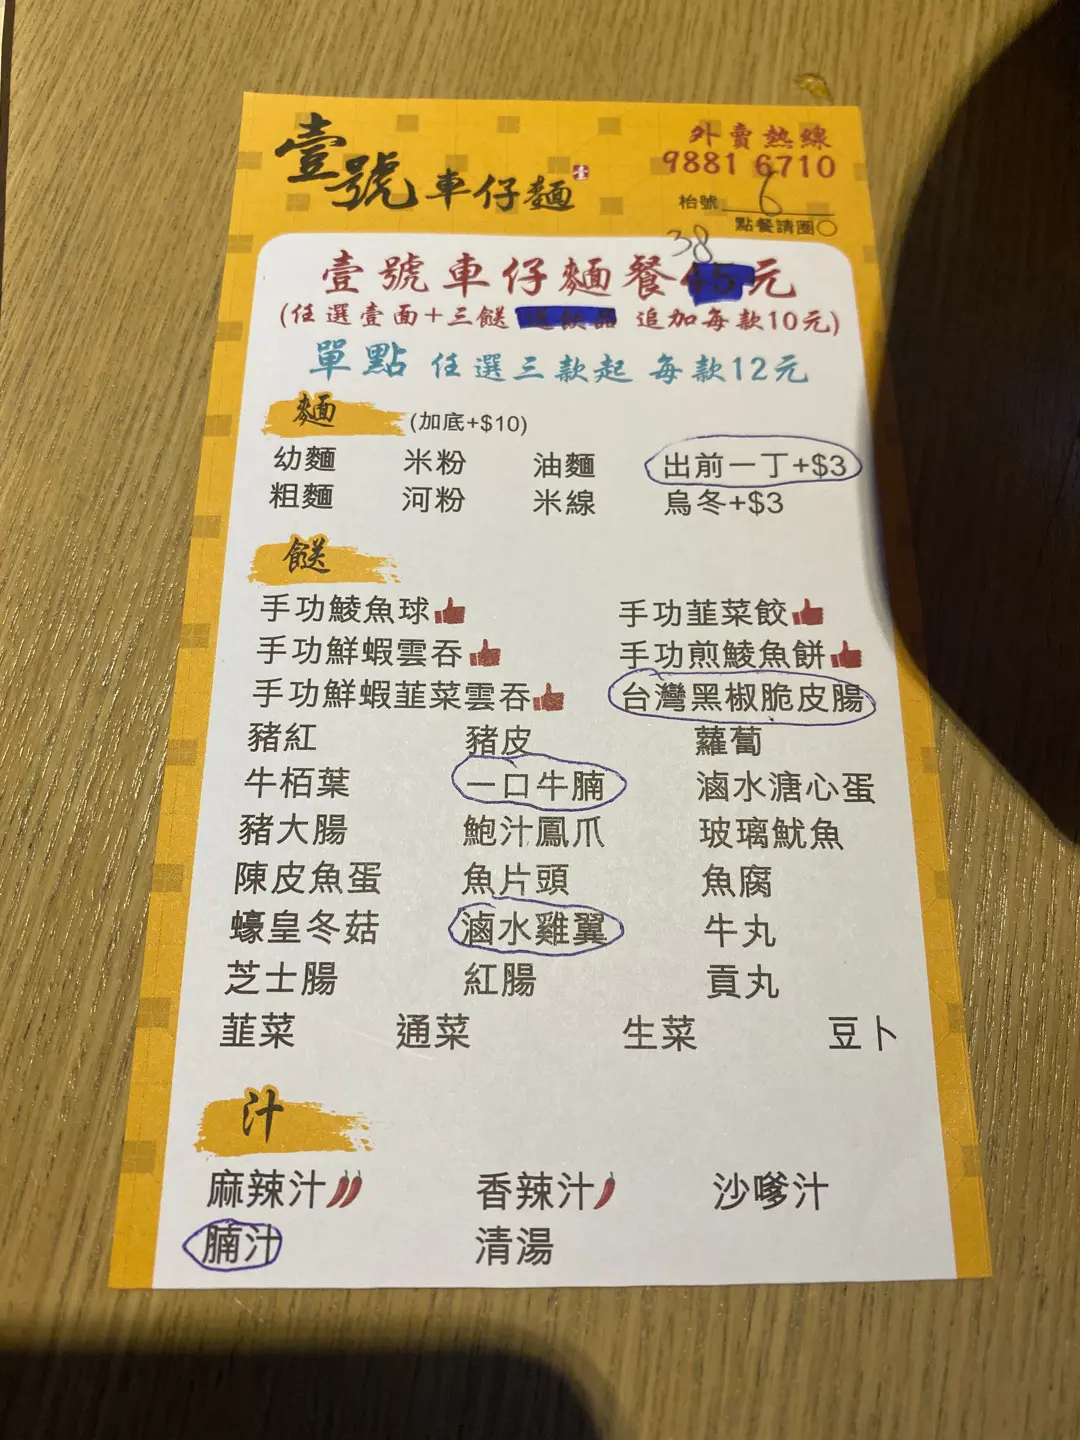 壹號車仔麵 壹
外賣熱線
9881 6710
枱號 6
點餐請圈○
38
壹號車仔麵餐45元
(任選壹面+三餸 送飲品 追加每款10元)
單點 任選三款起 每款12元
麵 (加底+$10)
幼麵 米粉 油麵 出前一丁+$3
粗麵 河粉 米線 烏冬+$3
餸
手功鯪魚球 手功韮菜餃
手功鮮蝦雲吞 手功煎鯪魚餅
手功鮮蝦韮菜雲吞 台灣黑椒脆皮腸
豬紅 豬皮 蘿蔔
牛栢葉 一口牛腩 滷水溏心蛋
豬大腸 鮑汁鳳爪 玻璃魷魚
陳皮魚蛋 魚片頭 魚腐
蠔皇冬菇 滷水雞翼 牛丸
芝士腸 紅腸 貢丸
韮菜 通菜 生菜 豆卜
汁
麻辣汁 香辣汁 沙嗲汁
腩汁 清湯